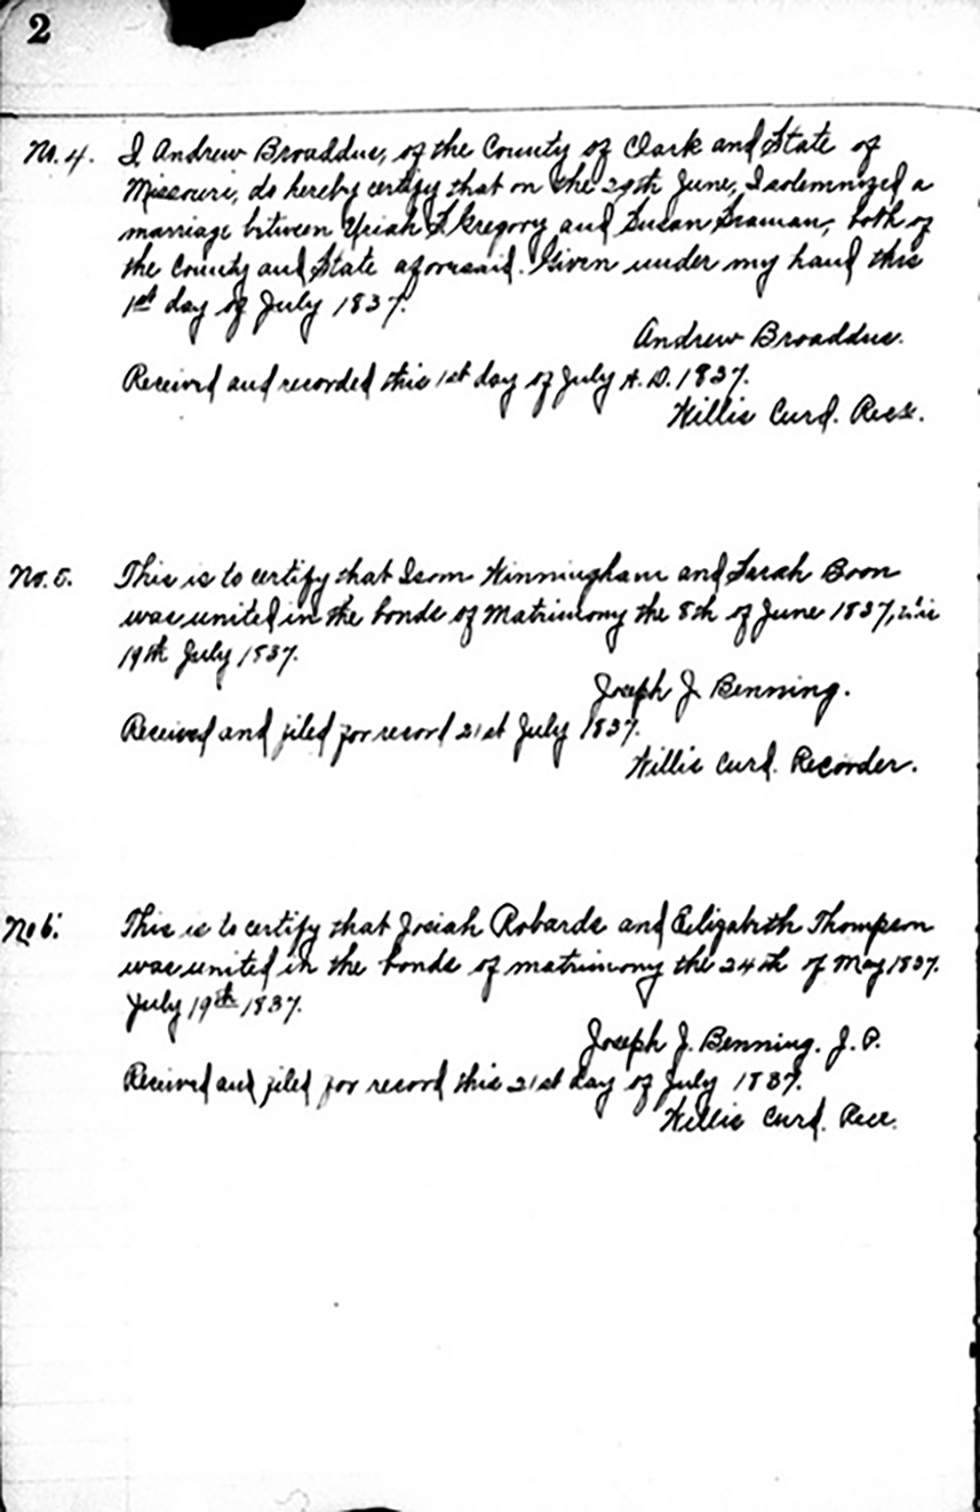 2
No. 4. I Andrew Broaddus, of the County of Clark and State of
Missouri, do hereby certify that on the 29th June, I solemnized a
marriage between Uriah S. Gregory and Susan Seaman, both of
the County and State aforesaid. Given under my hand this
1st day of July 1837.
Andrew Broaddus.
Received and recorded this 1st day of July A. D. 1837.
Willis Curd. Recr.
No. 5. This is to certify that Isom Winningham and Sarah Boon
was united in the bonds of Matrimony the 8th of June 1837,
19th July 1837.
Joseph J. Benning.
Received and filed for record 21st July 1837.
Willis Curd. Recorder.
No 6. This is to certify that Josiah Robards and Elizabeth Thompson
was united in the bonds of matrimony the 24th of May 1837.
July 19th 1837.
Joseph J. Benning. J. P.
Received and filed for record this 21st day of July 1837.
Willis Curd. Recr.